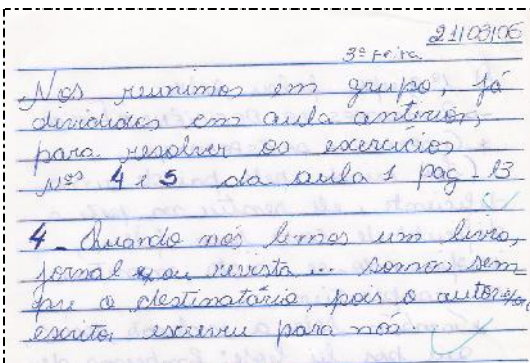 21/03/06
3ª feira
Nos reunimos em grupo, já
divididos em aula anterior,
para resolver os exercícios
Nºs 4 e 5 da aula 1 pag - 13
4 - Quando nós lemos um livro,
jornal ou revista ... somos sem
pre o destinatário, pois o autor e/ou
escritor escreveu para nós.